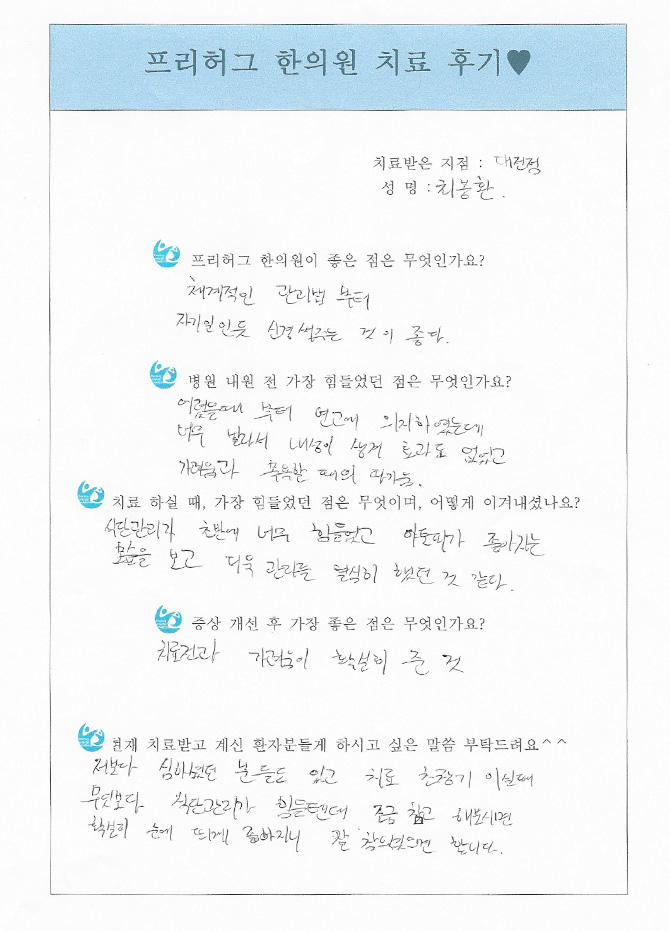 프리허그 한의원 치료 후기♥
치료받은 지점 : 대전점
성 명 : 최봉환.
프리허그 한의원이 좋은 점은 무엇인가요?
체계적인 관리법 부터
자기일인듯 신경써주는 것이 좋다.
병원 내원 전 가장 힘들었던 점은 무엇인가요?
어렸을때 부터 연고에 의지하였는데
너무 발라서 내성이 생겨 효과도 없었고
가려움과 목욕할 때의 따가움.
치료 하실 때, 가장 힘들었던 점은 무엇이며, 어떻게 이겨내셨나요?
식단관리가 초반에 너무 힘들었고 아토피가 좋아지는
모습을 보고 더욱 관리를 열심히 했던 것 같다.
증상 개선 후 가장 좋은 점은 무엇인가요?
치료전과 가려움이 확실히 준 것
현재 치료받고 계신 환자분들게 하시고 싶은 말씀 부탁드려요^^
저보다 심하셨던 분들도 있고 치료 초창기 이실때
무엇보다 식단관리가 힘들텐데 조금 참고 해보시면
확실히 눈에 띄게 좋아지니 잘 참으셨으면 합니다.